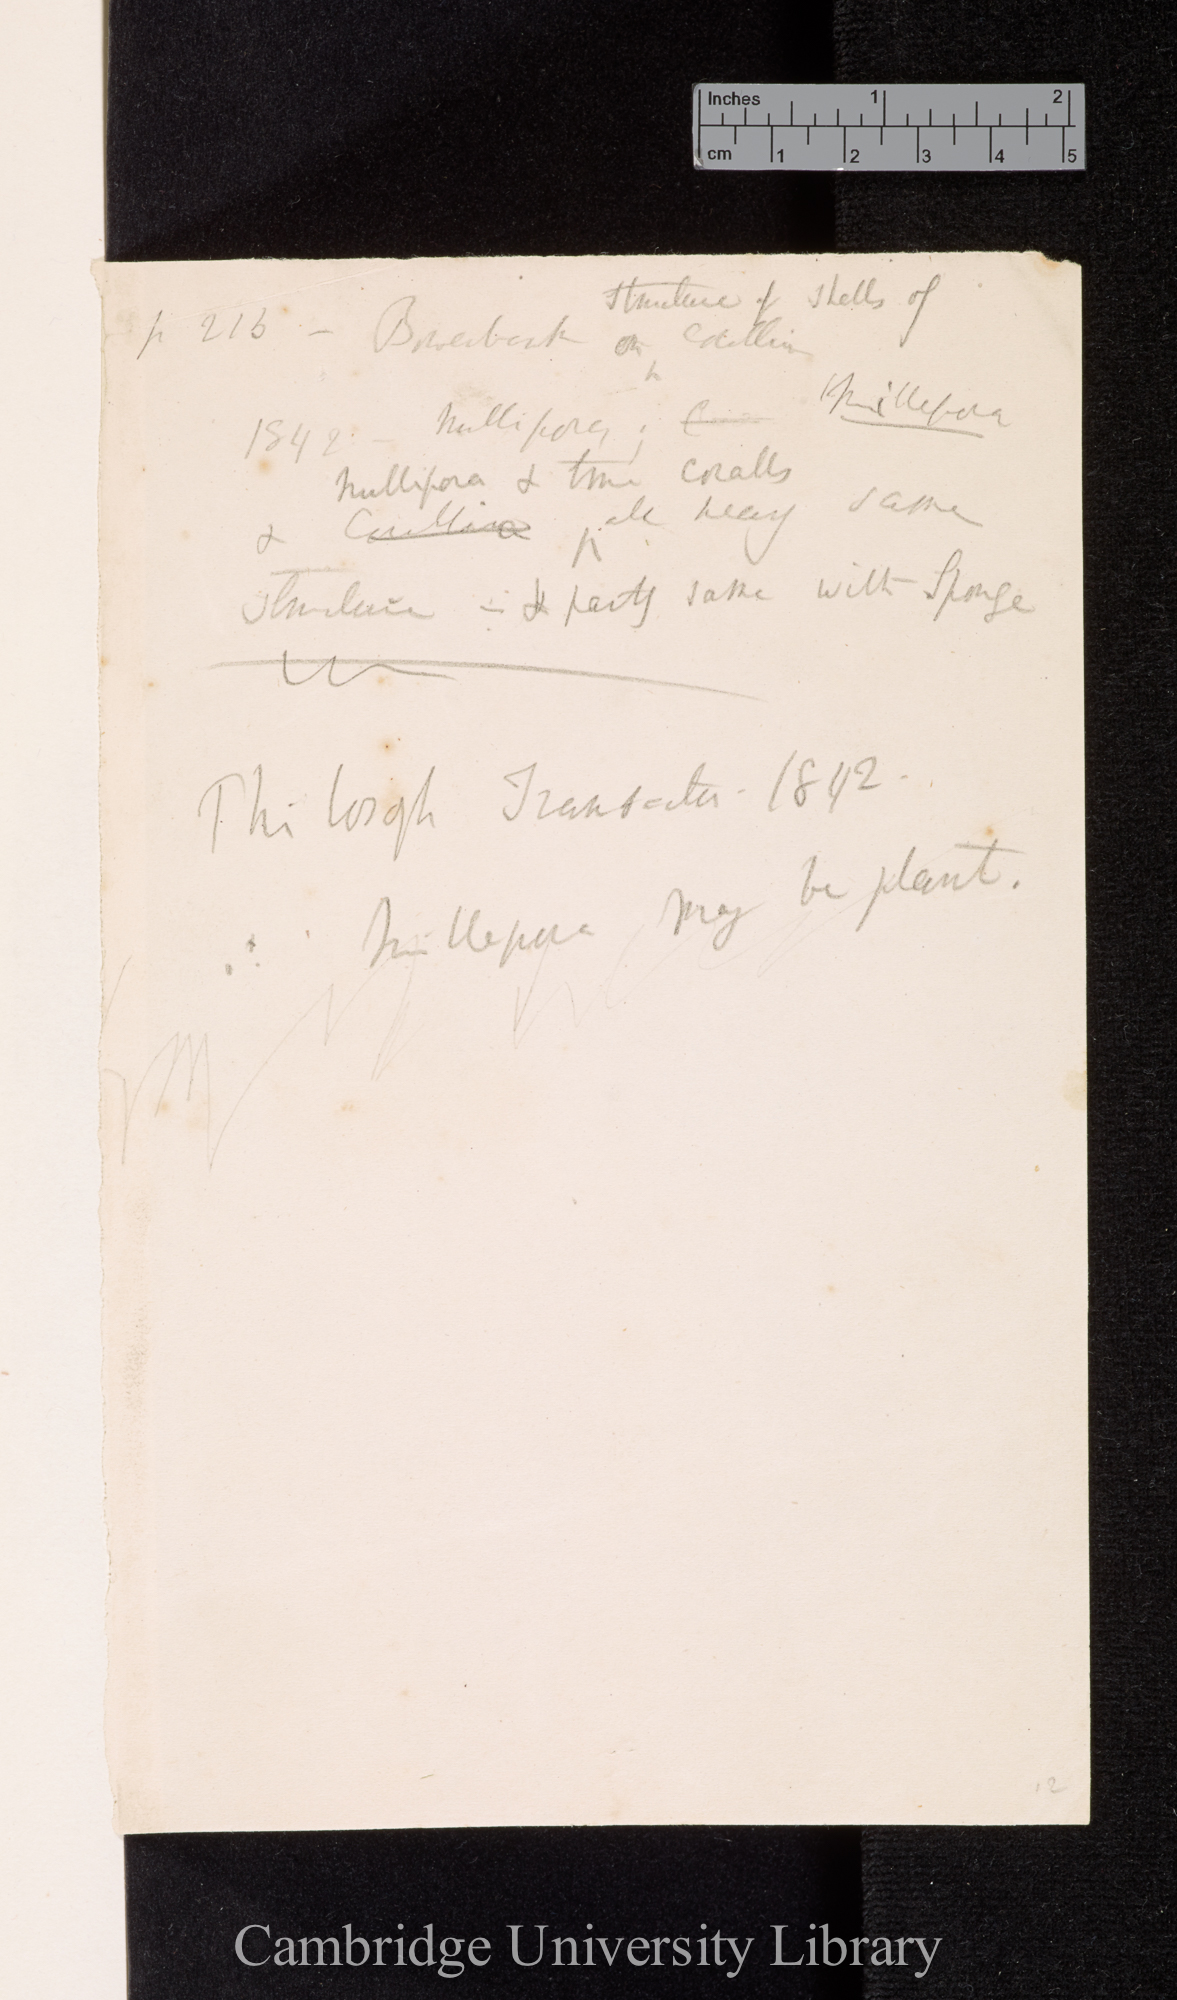 Inches 1 2
cm 1 2 3 4 5
structure of shells of
p 216 – Bowerbank on Corallin
1842 – Nullipora; Millepora
Nullipora & true coralls
& Corallina all nearly same
structure – & partly same with Sponge
Philosoph Transacter. 1842.
∴ Millepora may be plant.
12
Cambridge University Library